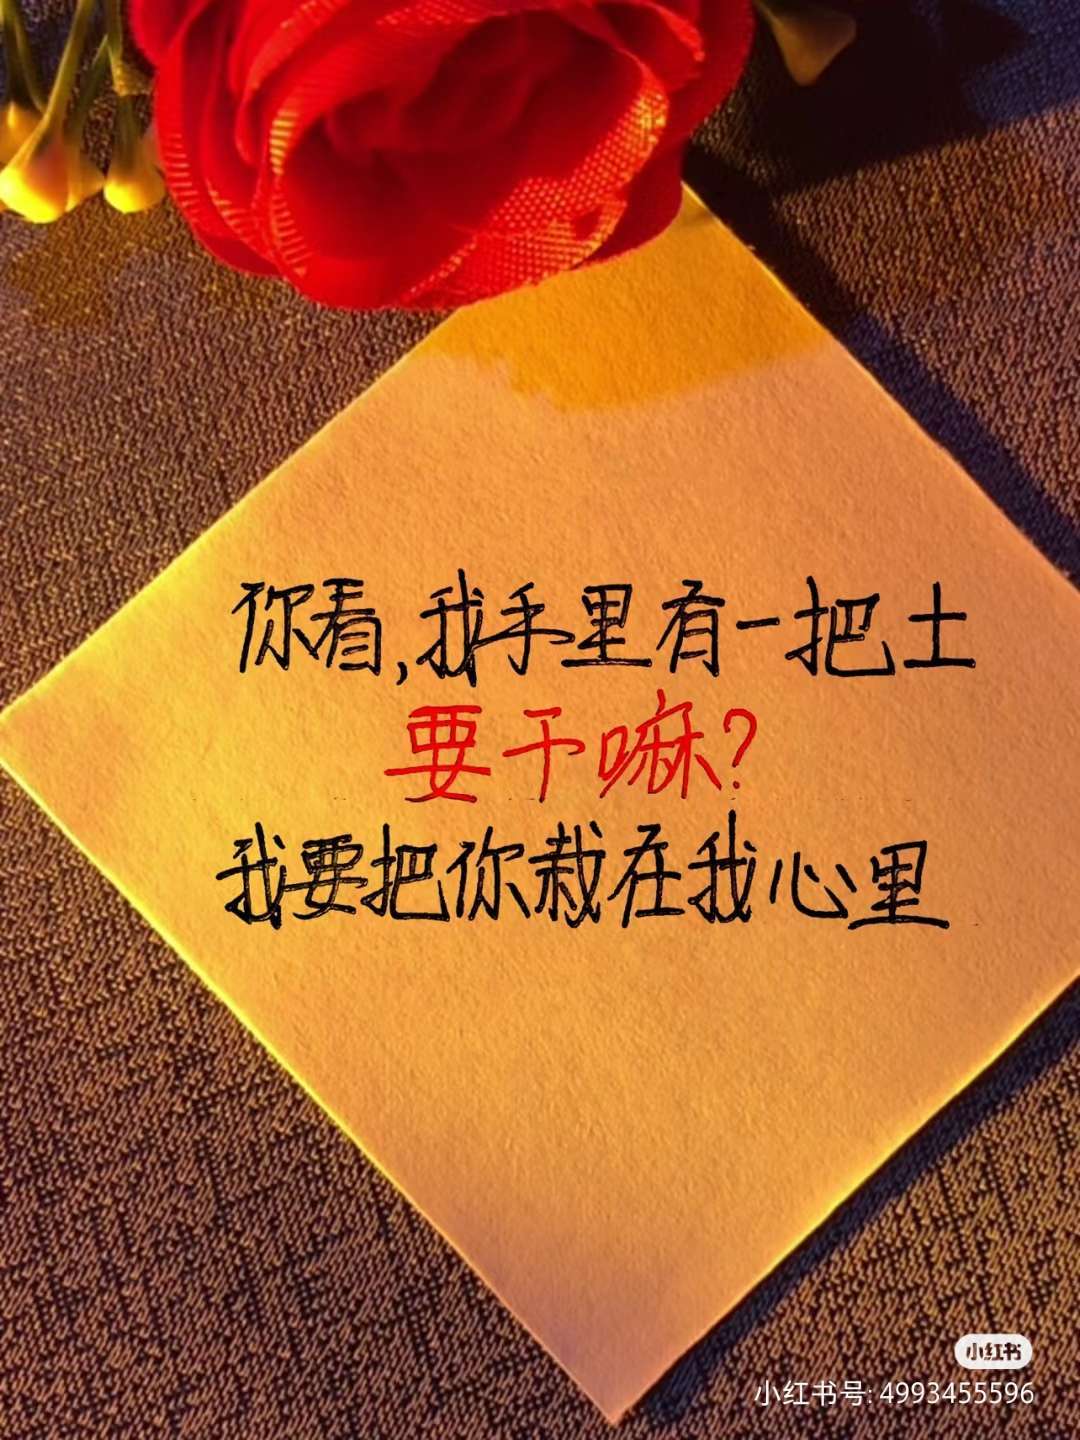 你看,我手里有一把土
要干嘛?
我要把你栽在我心里
小红书
小红书号: 4993455596